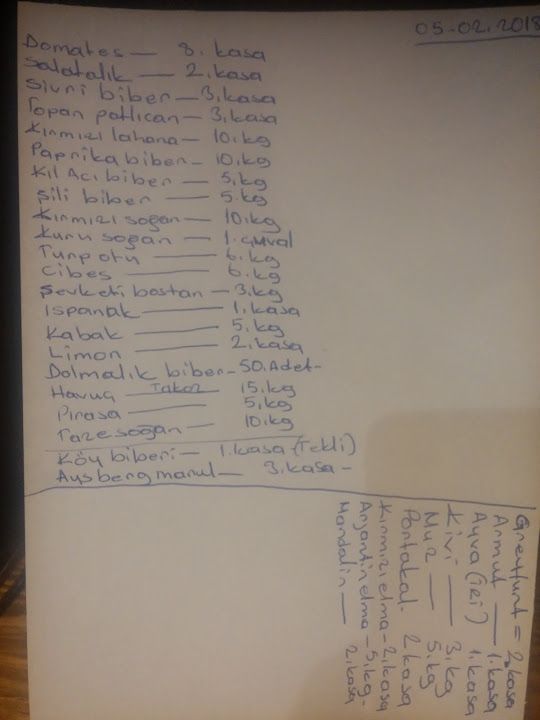 05-02.2018
Domates — 8. kasa
Salatalık — 2. kasa
Sivri biber — 3. kasa
Topan patlıcan — 3. kasa
Kırmızı lahana — 10. kg
Paprika biber — 10. kg
Kıl Acı biber — 5. kg
Şili biber — 5. kg
Kırmızı soğan — 10. kg
Kuru soğan — 1. çuval
Turp otu — 6. kg
Cibes — 6. kg
Şevketi bostan — 3. kg
Ispanak — 1. kasa
Kabak — 5. kg
Limon — 2. kasa
Dolmalık biber — 50. Adet -
Havuç — Takoz 15. kg
Pirasa — 5. kg
Taze soğan — 10. kg
Köy biberi — 1. kasa (Tekli)
Aysberg marul — 3. kasa -
Greyfurt = 2. kasa
Armut — 1. kasa
Ayva (İRİ) 1. kasa
Kivi — 3. kg
Muz — 5. kg
Portakal - 2 kasa
Kırmızı elma - 2. kasa
Arjantin elma - 5. kg -
Mandalin — 2. kasa